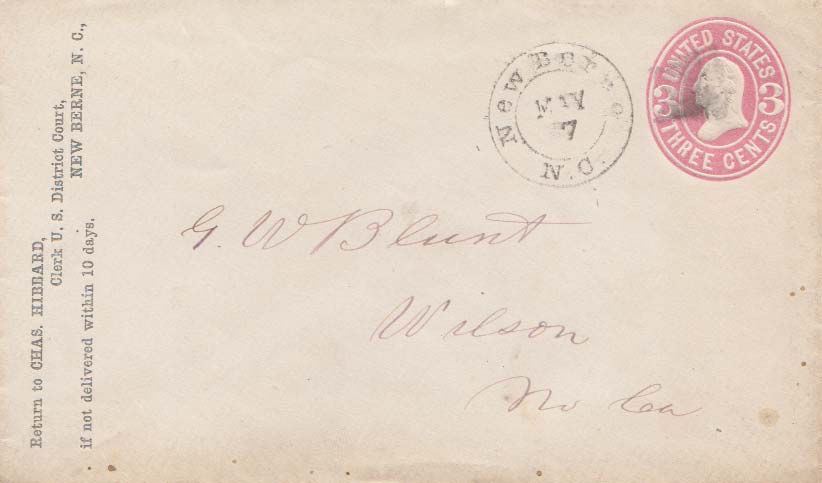 Return to CHAS. HIBBARD,
Clerk U. S. District Court,
NEW BERNE, N. C.,
if not delivered within 10 days.
New Berne
MAY
7
N.C.
UNITED STATES
3 3
THREE CENTS
G. W Blunt
Wilson
No Ca